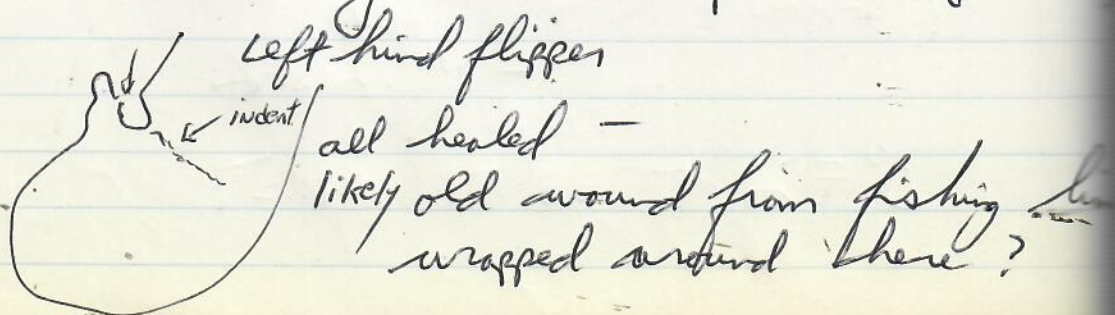 Left hind flipper
indent
all healed —
likely old wound from fishing
wrapped around there ?